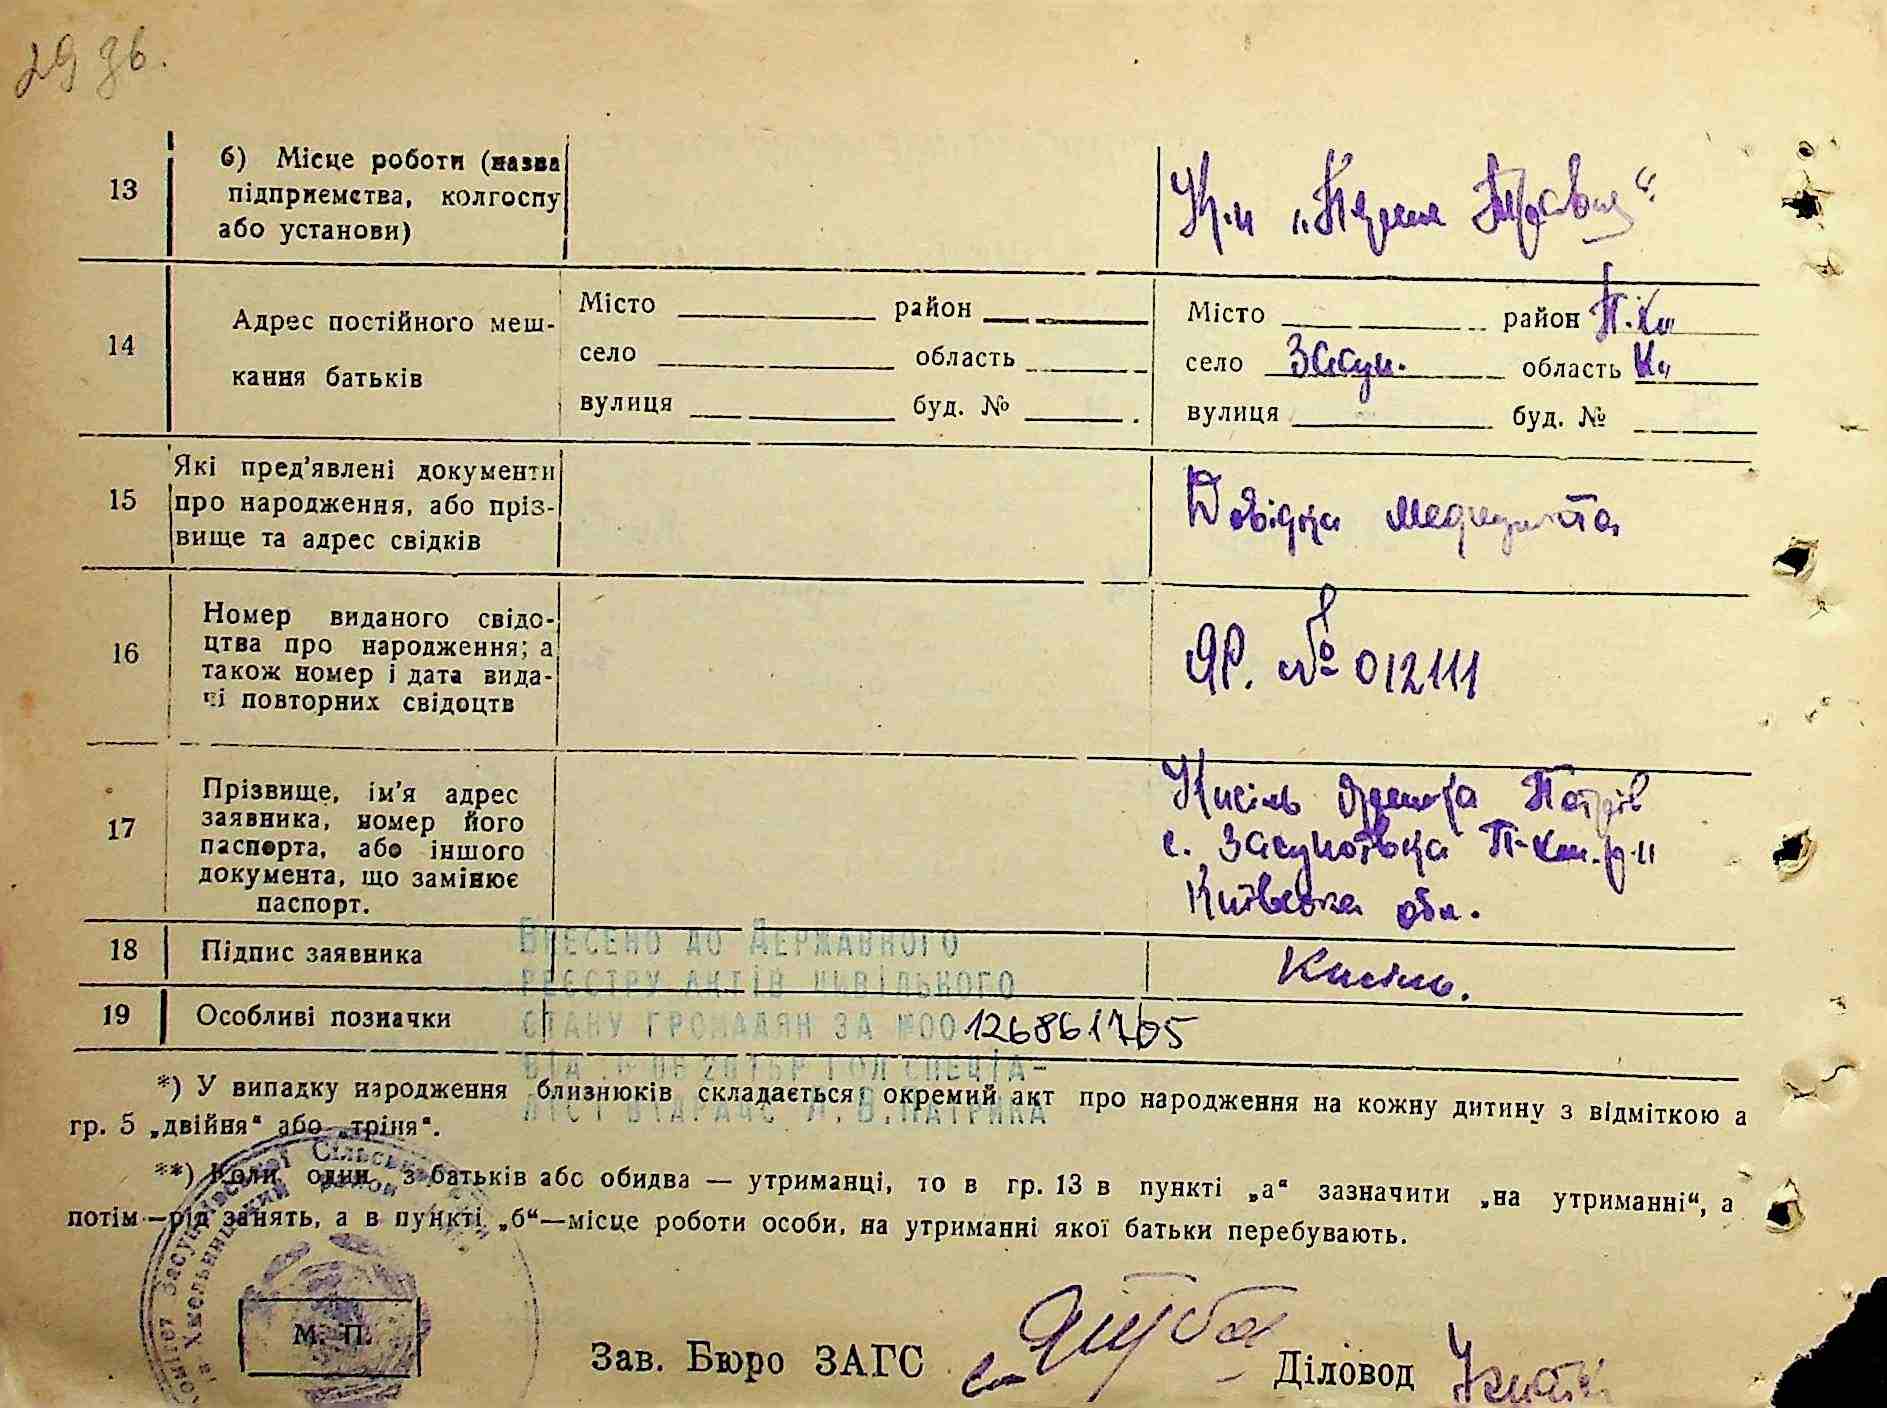 29 зв.
13
б) Місце роботи (назва
підприємства, колгоспу
або установи)
К-п „Перше Травня“
14
Адрес постійного меш-
кання батьків
Місто район
село область
вулиця буд. №
Місто район П.Хм
село Засун. область Ки
вулиця буд. №
15
Які пред'явлені документи
про народження, або пріз-
вище та адрес свідків
Довідка медпункта
16
Номер виданого свідо-
цтва про народження; а
також номер і дата вида-
чі повторних свідоцтв
ЯР. № 012111
17
Прізвище, ім'я адрес
заявника, номер його
паспорта, або іншого
документа, що замінює
паспорт.
Кисіль Петрів
с. Засупоївка П-Хм. р-н
Київська обл.
18
Підпис заявника
Кисіль.
19
Особливі позначки
Внесено до Державного
реєстру актів цивільного
стану громадян за №00 126861705
*) У випадку народження близнюків складається окремий акт про народження на кожну дитину з відміткою а
гр. 5 „двійня“ або „тріня“.
**) Коли один з батьків або обидва — утриманці, то в гр. 13 в пункті „а“ зазначити „на утриманні“, а
потім—рід занять, а в пункті „б“—місце роботи особи, на утриманні якої батьки перебувають.
М. П.
Зав. Бюро ЗАГС
Діловод